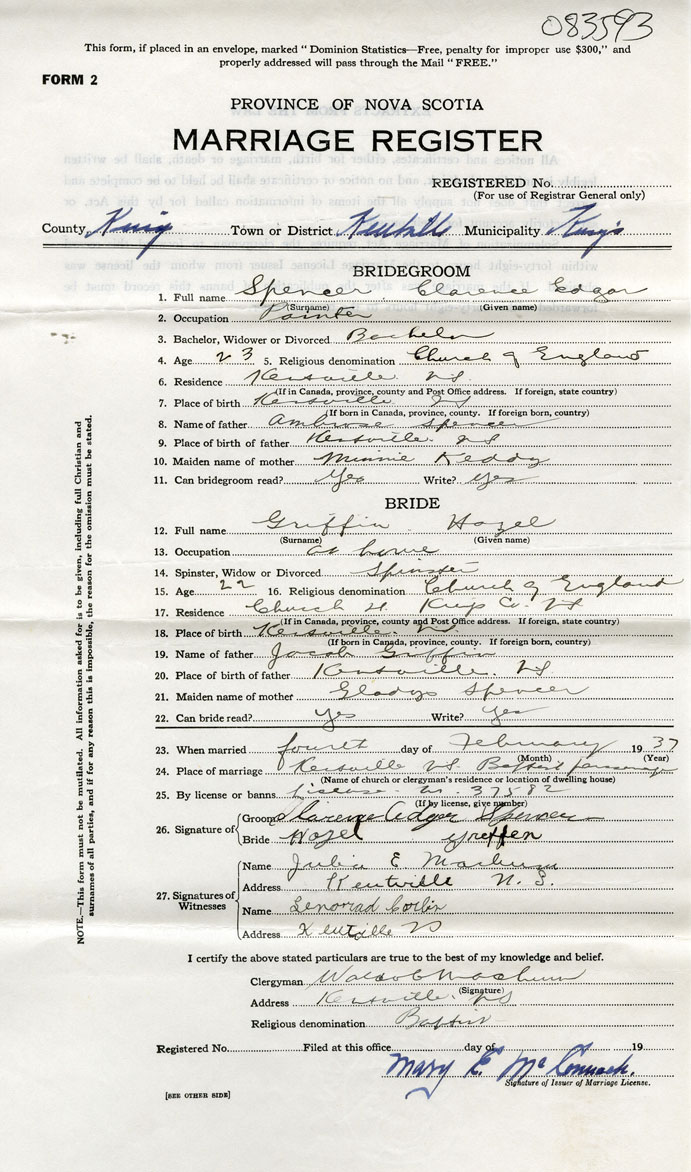 083593
This form, if placed in an envelope, marked "Dominion Statistics—Free, penalty for improper use $300," and
properly addressed will pass through the Mail "FREE."
FORM 2
PROVINCE OF NOVA SCOTIA
MARRIAGE REGISTER
REGISTERED No.
(For use of Registrar General only)
County Kings Town or District Kentville Municipality Kings
BRIDEGROOM
1. Full name Spencer Clarence Edgar
(Surname) (Given name)
2. Occupation Painter
3. Bachelor, Widower or Divorced Bachelor
4. Age 23 5. Religious denomination Church of England
6. Residence Kentville NS
(If in Canada, province, county and Post Office address. If foreign, state country)
7. Place of birth Kentville NS
(If born in Canada, province, county. If foreign born, country)
8. Name of father Ambrose Spencer
9. Place of birth of father Kentville NS
10. Maiden name of mother Minnie Keddy
11. Can bridegroom read? Yes Write? Yes
BRIDE
12. Full name Griffin Hazel
(Surname) (Given name)
13. Occupation at home
14. Spinster, Widow or Divorced Spinster
15. Age 22 16. Religious denomination Church of England
17. Residence Church St Kings Co. NS
(If in Canada, province, county and Post Office address. If foreign, state country)
18. Place of birth Kentville NS
(If born in Canada, province, county. If foreign born, country)
19. Name of father Jacob Griffin
20. Place of birth of father Kentville. NS
21. Maiden name of mother Gladys Spencer
22. Can bride read? Yes Write? Yes
23. When married fourth day of February 1937
(Month) (Year)
24. Place of marriage Kentville NS. Baptist parsonage
(Name of church or clergyman's residence or location of dwelling house)
25. By license or banns License No. 37582
(If by license, give number)
26. Signature of
Groom Clarence Edgar Spencer
Bride Hazel Greffen
27. Signatures of Witnesses
Name Julia E Machum
Address Kentville N. S.
Name Lenorad Corbin
Address Kentville NS
I certify the above stated particulars are true to the best of my knowledge and belief.
Clergyman Waldo C Machum
(Signature)
Address Kentville. NS
Religious denomination Baptist
Registered No. Filed at this office day of 19
Mary E. McCormack.
Signature of Issuer of Marriage License.
[SEE OTHER SIDE]
NOTE.—This form must not be mutilated. All information asked for is to be given, including full Christian and
surnames of all parties, and if for any reason this is impossible, the reason for the omission must be stated.